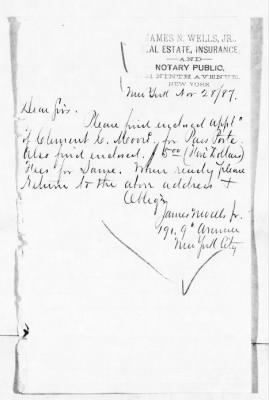 JAMES N. WELLS, JR.
REAL ESTATE, INSURANCE,
AND
NOTARY PUBLIC,
NINTH AVENUE,
NEW YORK
New York Nov 28/87.
Dear Sirs.
Please find enclosed appl"
of Clement C. Moore, for Pass Ports.
Also find enclosed. $5.00 (Five Dollars)
Fees for Same. When ready please
Return to the above address &
Oblige
James N. Wells Jr.
191. 9" Avenue
New York City